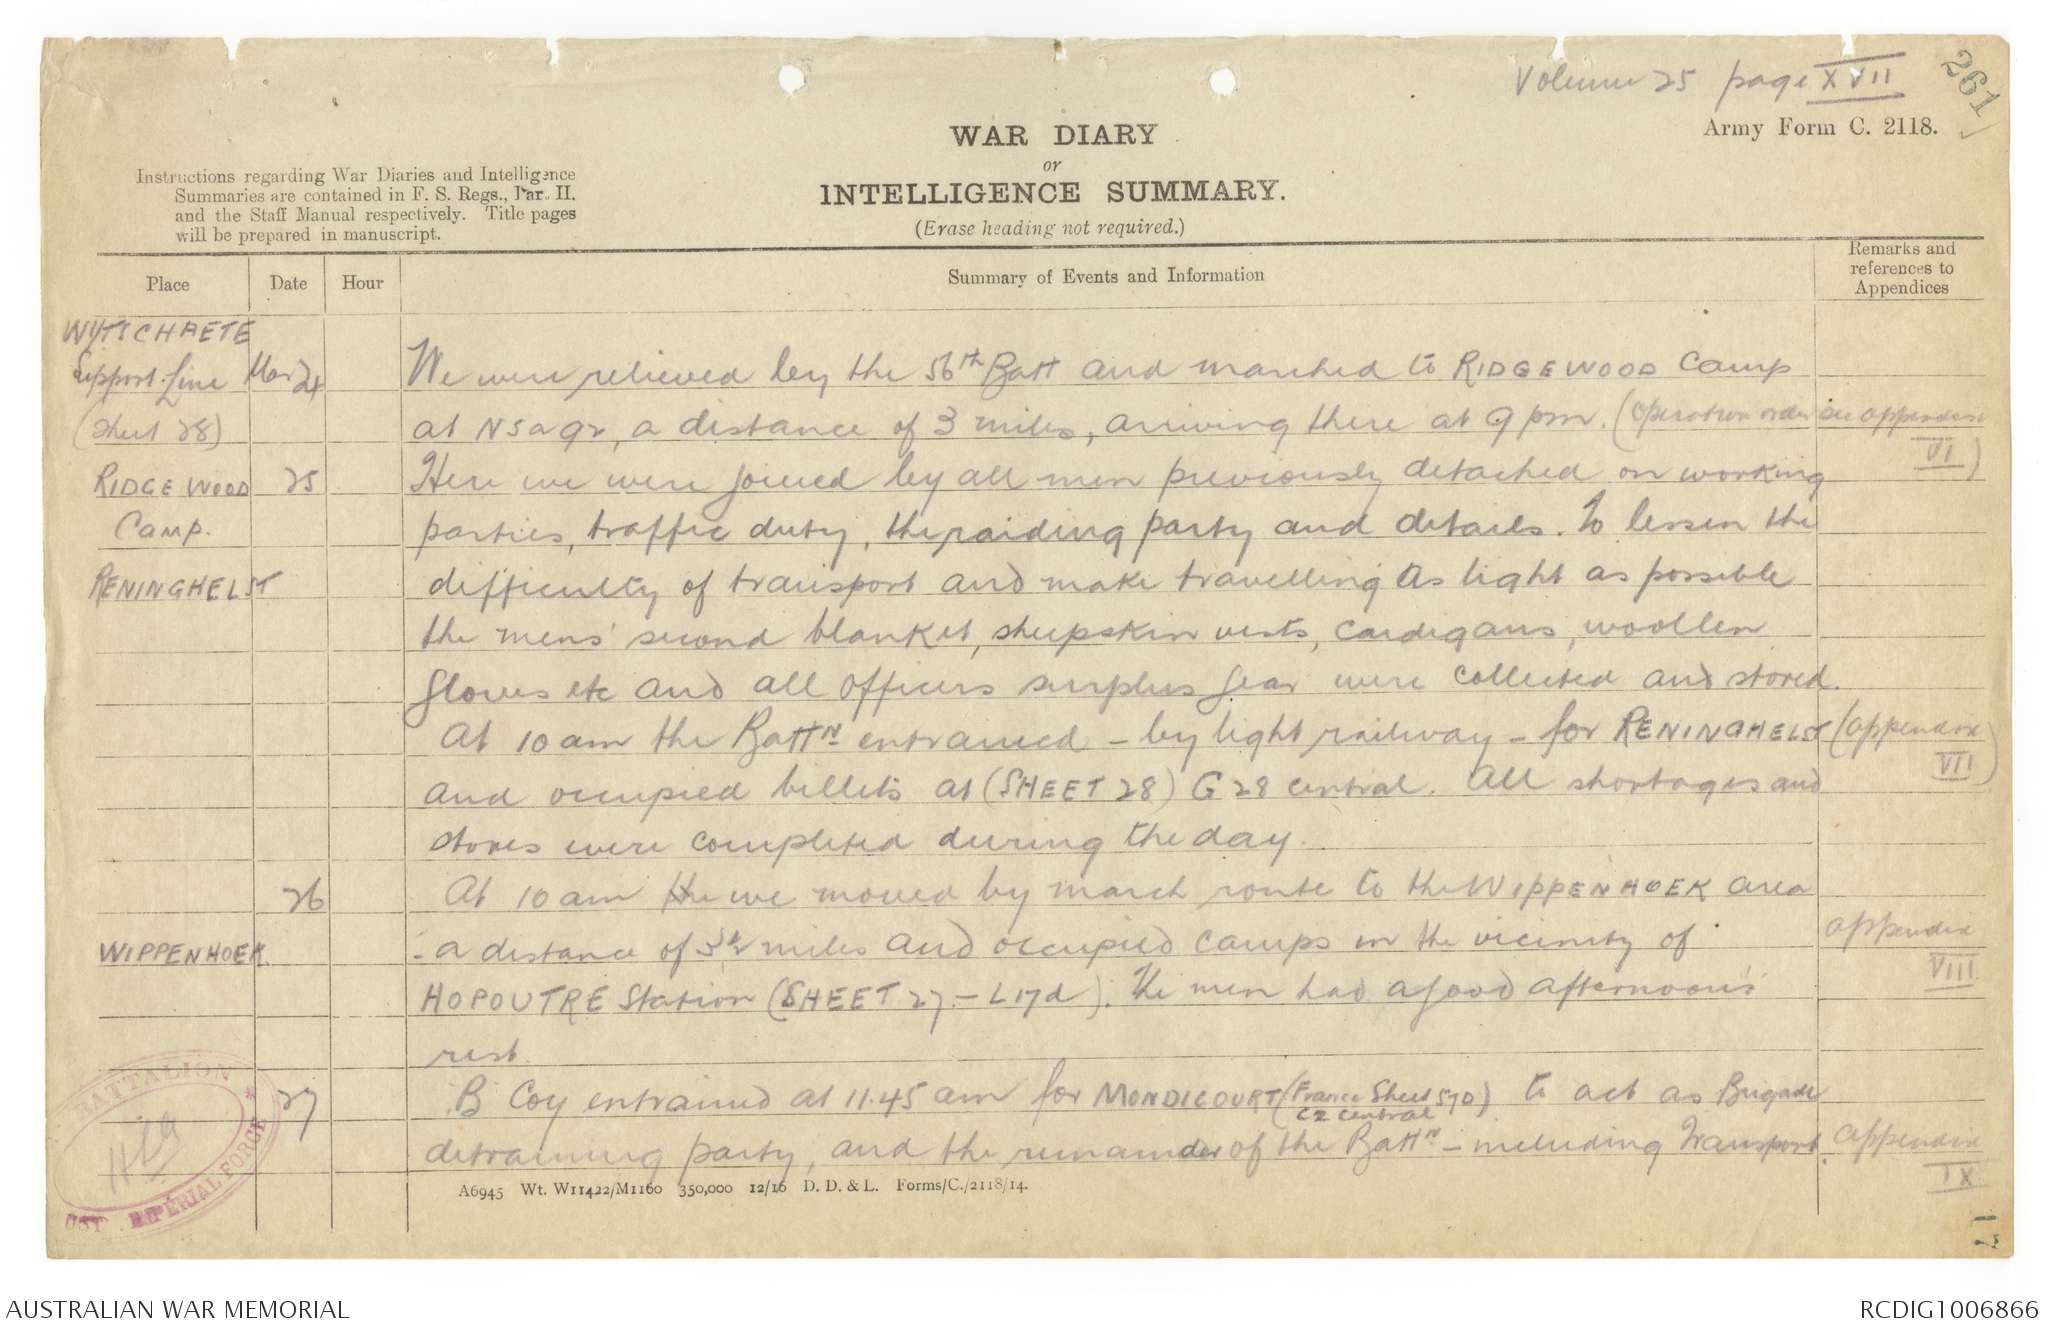 Volume 25 page XVII
261
Army Form C. 2118.
WAR DIARY
or
INTELLIGENCE SUMMARY.
(Erase heading not required.)
Instructions regarding War Diaries and Intelligence
Summaries are contained in F. S. Regs., Par. II.
and the Staff Manual respectively. Title pages
will be prepared in manuscript.
Place Date Hour Summary of Events and Information Remarks and references to Appendices
WYTSCHAETE
Support Line Mar 24 We were relieved by the 56th Batt and marched to RIDGEWOOD Camp
(Sheet 28) at N5a92, a distance of 3 miles, arriving there at 9 pm. (Operation order see appendix VI)
RIDGE WOOD 25 Here we were joined by all men previously detached on working
Camp. parties, traffic duty, the raiding party and details. To lessen the
RENINGHELST difficulty of transport and make travelling as light as possible
the mens' second blanket, sheepskin vests, cardigans, woollen
gloves etc and all officers surplus gear were collected and stored.
At 10 am the Battn entrained - by light railway - for RENINGHELST (appendix VII)
and occupied billets at (SHEET 28) G 28 central. All shortages and
stores were completed during the day.
26 At 10 am the we moved by march route to the WIPPENHOEK area
WIPPENHOEK. - a distance of 3½ miles and occupied camps in the vicinity of appendix VIII
HOPOUTRE Station (SHEET 27 - L17d). The men had a good afternoon's
rest.
27 B Coy entrained at 11.45 am for MONDICOURT (France Sheet 57D) to act as Brigade
C2 central
detraining party, and the remainder of the Battn - including Transport appendix IX
BATTALION
IMPERIAL FORCE
A6945 Wt. W11422/M1160 350,000 12/16 D. D. & L. Forms/C./2118/14.
17
AUSTRALIAN WAR MEMORIAL
RCDIG1006866